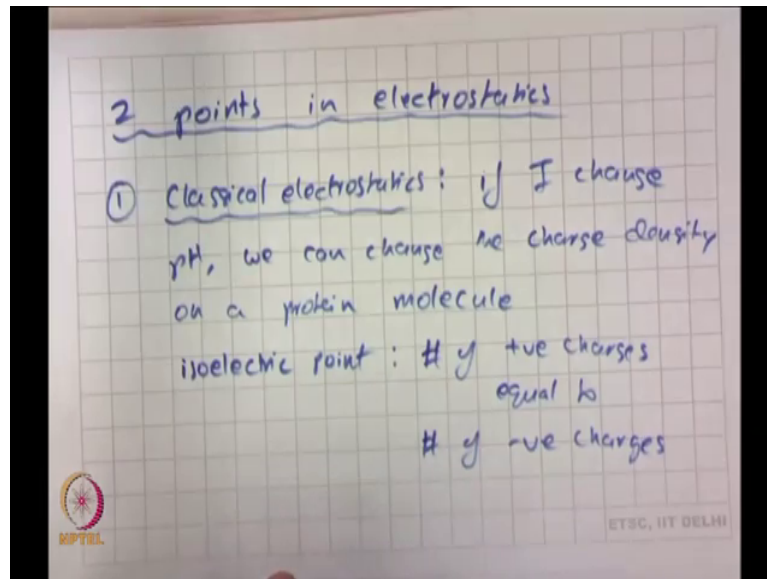 2 points in electrostatics
① Classical electrostatics: if I change
pH, we can change the charge density
on a protein molecule
isoelectric point: # of +ve charges
equal to
# of -ve charges
NPTEL
ETSC, IIT DELHI